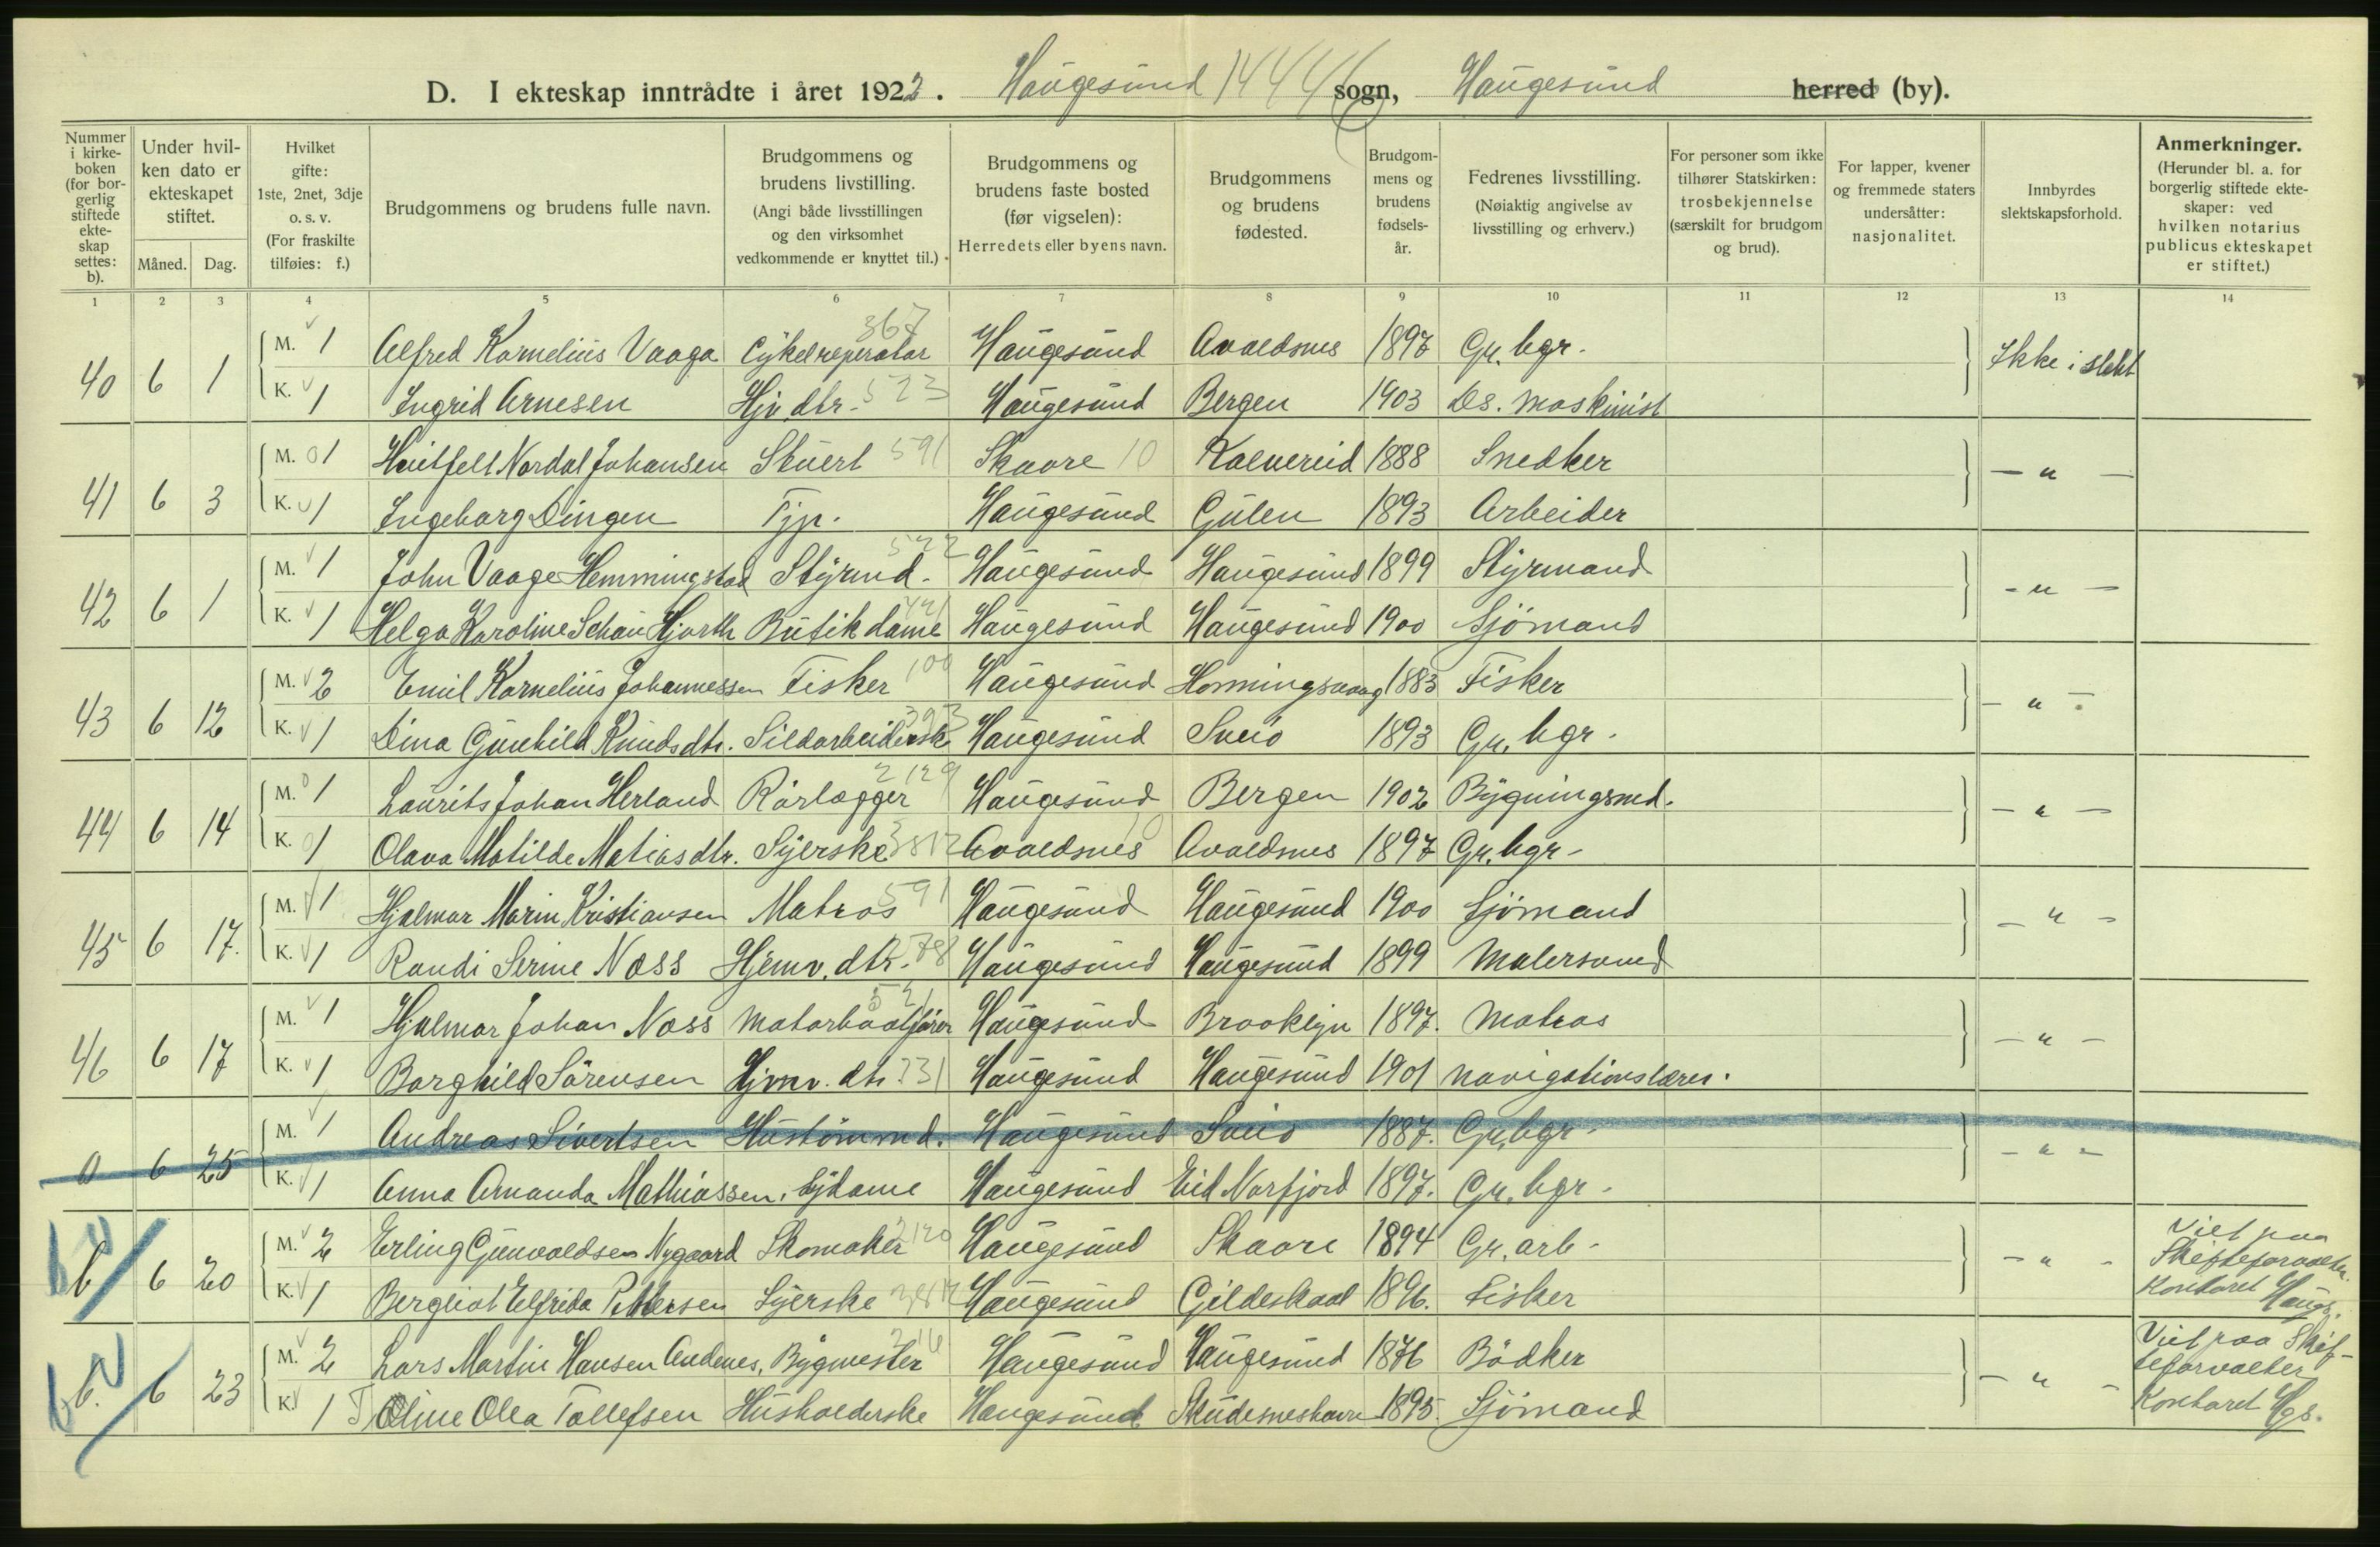 D. I ekteskap inntrådte i året 1922. Haugesund 1444 sogn, Haugesund herred (by).
Nummer i kirkeboken (for borgerlig stiftede ekteskap settes: b).
Under hvilken dato er ekteskapet stiftet.
Måned. Dag.
Hvilket gifte: 1ste, 2net, 3dje o. s. v. (For fraskilte tilføies: f.)
Brudgommens og brudens fulle navn.
Brudgommens og brudens livstilling. (Angi både livsstillingen og den virksomhet vedkommende er knyttet til.)
Brudgommens og brudens faste bosted (før vigselen): Herredets eller byens navn.
Brudgommens og brudens fødested.
Brudgommens og brudens fødselsår.
Fedrenes livsstilling. (Nøiaktig angivelse av livsstilling og erhverv.)
For personer som ikke tilhører Statskirken: trosbekjennelse (særskilt for brudgom og brud).
For lapper, kvener og fremmede staters undersåtter: nasjonalitet.
Innbyrdes slektskapsforhold.
Anmerkninger. (Herunder bl. a. for borgerlig stiftede ekteskaper: ved hvilken notarius publicus ekteskapet er stiftet.)
1 2 3 4 5 6 7 8 9 10 11 12 13 14
40 6 1 M. 1 Alfred Kornelius Vaaga Cykelreperatør 367 Haugesund Avaldsnes 1897 Gr. bgr. Ikke i slekt
K. 1 Ingrid Arnesen Hjv. dtr. 523 Haugesund Bergen 1903 Ds. maskinist
41 6 3 M. 1 Huitfelt Nordal Johansen Stuert 591 Skaare 10 Kalvereid 1888 Snedker — " —
K. 1 Ingeborg Dingen Tjp. Haugesund Gulen 1893 Arbeider
42 6 1 M. 1 John Vaage Hemmingstad Styrmd. 522 Haugesund Haugesund 1899 Styrmand - " -
K. 1 Helga Karoline Schau Hjorth Butikdame 421 Haugesund Haugesund 1900 Sjömand
43 6 12 M. 2 Emil Kornelius Johannessen Fisker 100 Haugesund Honningsvaag 1883 Fisker - " -
K. 1 Dina Gunhild Knudsdtr. Sildarbeiderske 393 Haugesund Sveio 1893 Gr. bgr.
44 6 14 M. 1 Laurits Johan Herland Rörlægger 2129 Haugesund Bergen 1902 Bygningsmd. - " -
K. 1 Olava Matilde Matiasdtr. Syerske 3812 Avaldsnes 10 Avaldsnes 1897 Gr. bgr.
45 6 17. M. 1 Hjalmar Marin Kristiansen Matros 591 Haugesund Haugesund 1900 Sjömand - " -
K. 1 Randi Serine Næss Hjemv. dtr. Haugesund Haugesund 1899 Malersvend
46 6 17 M. 1 Hjalmar Johan Næss Motorbaatförer 521 Haugesund Brooklyn 1897. Matros - " -
K. 1 Borghild Sörensen Hjmv. dtr. 731 Haugesund Haugesund 1901 Navigationslærer.
0 6 25 M. 1 Andreas Sivertsen Hustömmd. Haugesund Sveio 1887. Gr. bgr. - " -
K. 1 Anna Amanda Mathiassen, Sydame Haugesund Eid Norfjord 1897. Gr. bgr.
b 6 20 M. 2 Erling Gunvaldsen Nygaard Skomaker 2120 Haugesund Skaare 1894 Gr. arb. - " - Viet paa Skifteforvalter Kontoret Haugs.
K. 1 Bergliot Elfrida Pettersen Syerske 3812 Haugesund Gildeskaal 1896. Fisker
b. 6 23 M. 2 Lars Martin Hansen Andenes, Bygmester 216 Haugesund Haugesund 1876 Bödker - " - Viet paa Skifteforvalter Kontoret Hgs.
K. 1 Oline Olea Tollefsen Husholderske Haugesund Skudesneshavn 1895. Sjömand